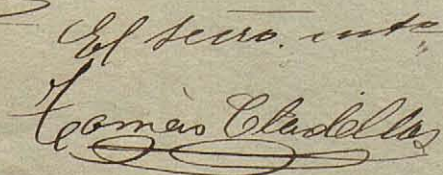 El secro. int.º
Tomás Cladellas